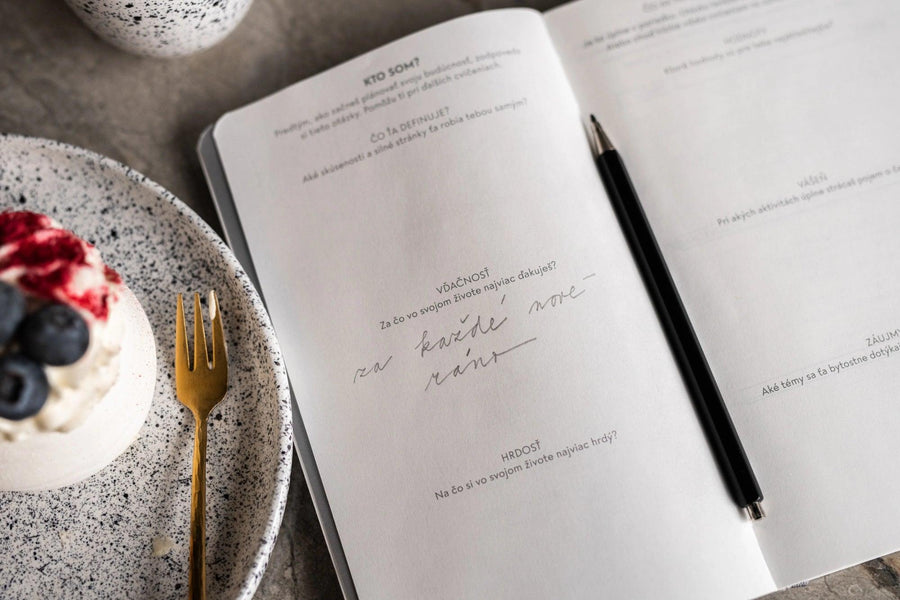 KTO SOM?
Predtým, ako začneš plánovať svoju budúcnosť, zodpovedz
si tieto otázky. Pomôžu ti pri ďalších cvičeniach.
ČO ŤA DEFINUJE?
Aké skúsenosti a silné stránky ťa robia tebou samým?
VĎAČNOSŤ
Za čo vo svojom živote najviac ďakuješ?
za každé nové
ráno
HRDOSŤ
Na čo si vo svojom živote najviac hrdý?
HODNOTY
Ktoré hodnoty sú pre teba
VÁŠEŇ
Pri akých aktivitách úplne strácaš pojem o
ZÁUJMY
Aké témy sa ťa bytostne dotýka